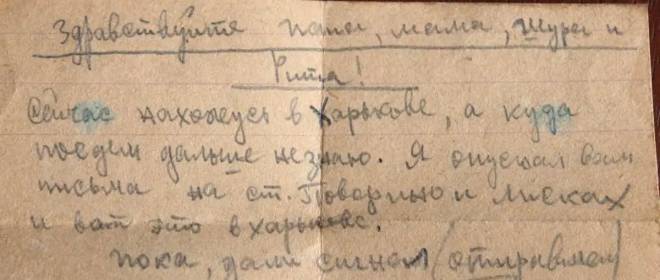 Здравствуйте папа, мама, Шура и
Рита!
Сейчас нахожусь в Харькове, а куда
поедем дальше не знаю. Я опускал вам
письма на ст. Поворино и Лисках
и вот это в Харькове.
Пока, дали сигнал (отправляем)